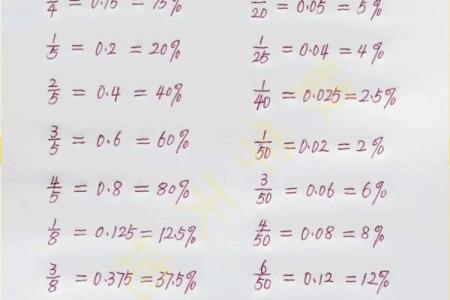 /4 = 0.75 = 75%
1/5 = 0.2 = 20%
2/5 = 0.4 = 40%
3/5 = 0.6 = 60%
4/5 = 0.8 = 80%
1/8 = 0.125 = 12.5%
3/8 = 0.375 = 37.5%
/20 = 0.05 = 5%
1/25 = 0.04 = 4%
1/40 = 0.025 = 2.5%
1/50 = 0.02 = 2%
3/50 = 0.06 = 6%
4/50 = 0.08 = 8%
6/50 = 0.12 = 12%